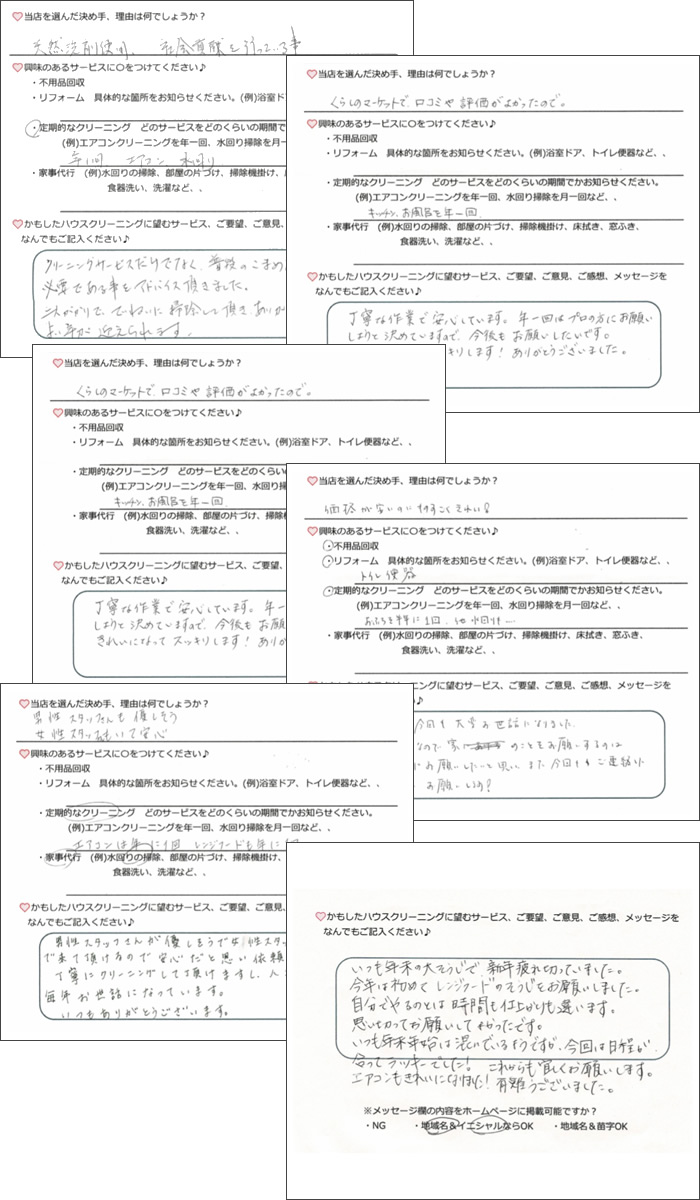 当店を選んだ決め手、理由は何でしょうか？
天然洗剤使用、社会貢献を行っている事
興味のあるサービスに〇をつけてください♪
・不用品回収
・リフォーム　具体的な箇所をお知らせください。(例)浴室ド
・定期的なクリーニング　どのサービスをどのくらいの期間で
(例)エアコンクリーニングを年一回、水回り掃除を月一
年1回　エアコン　水回り
・家事代行　(例)水回りの掃除、部屋の片づけ、掃除機掛け、
食器洗い、洗濯など、、
かもしたハウスクリーニングに望むサービス、ご要望、ご意見、
なんでもご記入ください♪
クリーニングサービスだけでなく、普段のこまめ
必要である事をアドバイス頂きました。
ていねいに掃除して頂き、あり
年が迎えられます。
当店を選んだ決め手、理由は何でしょうか？
くらしのマーケットで、口コミや評価がよかったので。
興味のあるサービスに〇をつけてください♪
・不用品回収
・リフォーム　具体的な箇所をお知らせください。(例)浴室ドア、トイレ便器など、、
・定期的なクリーニング　どのサービスをどのくらいの期間でかお知らせください。
(例)エアコンクリーニングを年一回、水回り掃除を月一回など、、
キッチン、お風呂を年一回
・家事代行　(例)水回りの掃除、部屋の片づけ、掃除機掛け、床拭き、窓ふき、
食器洗い、洗濯など、、
かもしたハウスクリーニングに望むサービス、ご要望、ご意見、ご感想、メッセージを
なんでもご記入ください♪
丁寧な作業で安心しています。年一回はプロの方にお願い
しようと決めていますので、今後もお願いしたいです。
キリします！ありがとうございました。
当店を選んだ決め手、理由は何でしょうか？
くらしのマーケットで、口コミや評価がよかったので。
興味のあるサービスに〇をつけてください♪
・不用品回収
・リフォーム　具体的な箇所をお知らせください。(例)浴室ドア、トイレ便器など、、
・定期的なクリーニング　どのサービスをどのくらい
(例)エアコンクリーニングを年一回、水回り掃
キッチン、お風呂を年一回
・家事代行　(例)水回りの掃除、部屋の片づけ、掃除機
食器洗い、洗濯など、、
かもしたハウスクリーニングに望むサービス、ご要望、
なんでもご記入ください♪
丁寧な作業で安心しています。年一
しようと決めていますので、今後もお願
きれいになってスッキリします！ありが
当店を選んだ決め手、理由は何でしょうか？
価格が安いのにものすごくきれい！
興味のあるサービスに〇をつけてください♪
・不用品回収
・リフォーム　具体的な箇所をお知らせください。(例)浴室ドア、トイレ便器など、、
トイレ便器
・定期的なクリーニング　どのサービスをどのくらいの期間でかお知らせください。
(例)エアコンクリーニングを年一回、水回り掃除を月一回など、、
おふろを半年に1回
・家事代行　(例)水回りの掃除、部屋の片づけ、掃除機掛け、床拭き、窓ふき、
食器洗い、洗濯など、、
望むサービス、ご要望、ご意見、ご感想、メッセージを
今回も大変お世話になりました
なので家のことをお願いするのは
お願いしたいと思い、また今回もご連絡
お願いします！
当店を選んだ決め手、理由は何でしょうか？
男性スタッフさんも優しそう
女性スタッフもいて安心
興味のあるサービスに〇をつけてください♪
・不用品回収
・リフォーム　具体的な箇所をお知らせください。(例)浴室ドア、トイレ便器など、、
・定期的なクリーニング　どのサービスをどのくらいの期間でかお知らせください。
(例)エアコンクリーニングを年一回、水回り掃除を月一回など、、
エアコンは年に1回　レンジフードも年に
・家事代行　(例)水回りの掃除、部屋の片づけ、掃除機掛け、
食器洗い、洗濯など、、
かもしたハウスクリーニングに望むサービス、ご要望、ご意見、
なんでもご記入ください♪
男性スタッフさんが優しそうで女性スタッ
で来て頂けるので安心だと思い依頼
丁寧にクリーニングして頂けますし、人
毎年お世話になっています。
いつもありがとうございます。
かもしたハウスクリーニングに望むサービス、ご要望、ご意見、ご感想、メッセージを
なんでもご記入ください♪
いつも年末の大そうじで新年疲れ切っていました。
今年は初めてレンジフードのそうじをお願いしました。
自分でやるのとは時間も仕上がりも違います。
思い切ってお願いしてよかったです。
いつも年末年始は混んでいるようですが、今回は日程が
合ってラッキーでした！これからも宜しくお願いします。
エアコンもきれいになりました！有難うございました。
※メッセージ欄の内容をホームページに掲載可能ですか？
・NG　・地域名＆イニシャルならOK　・地域名＆苗字OK